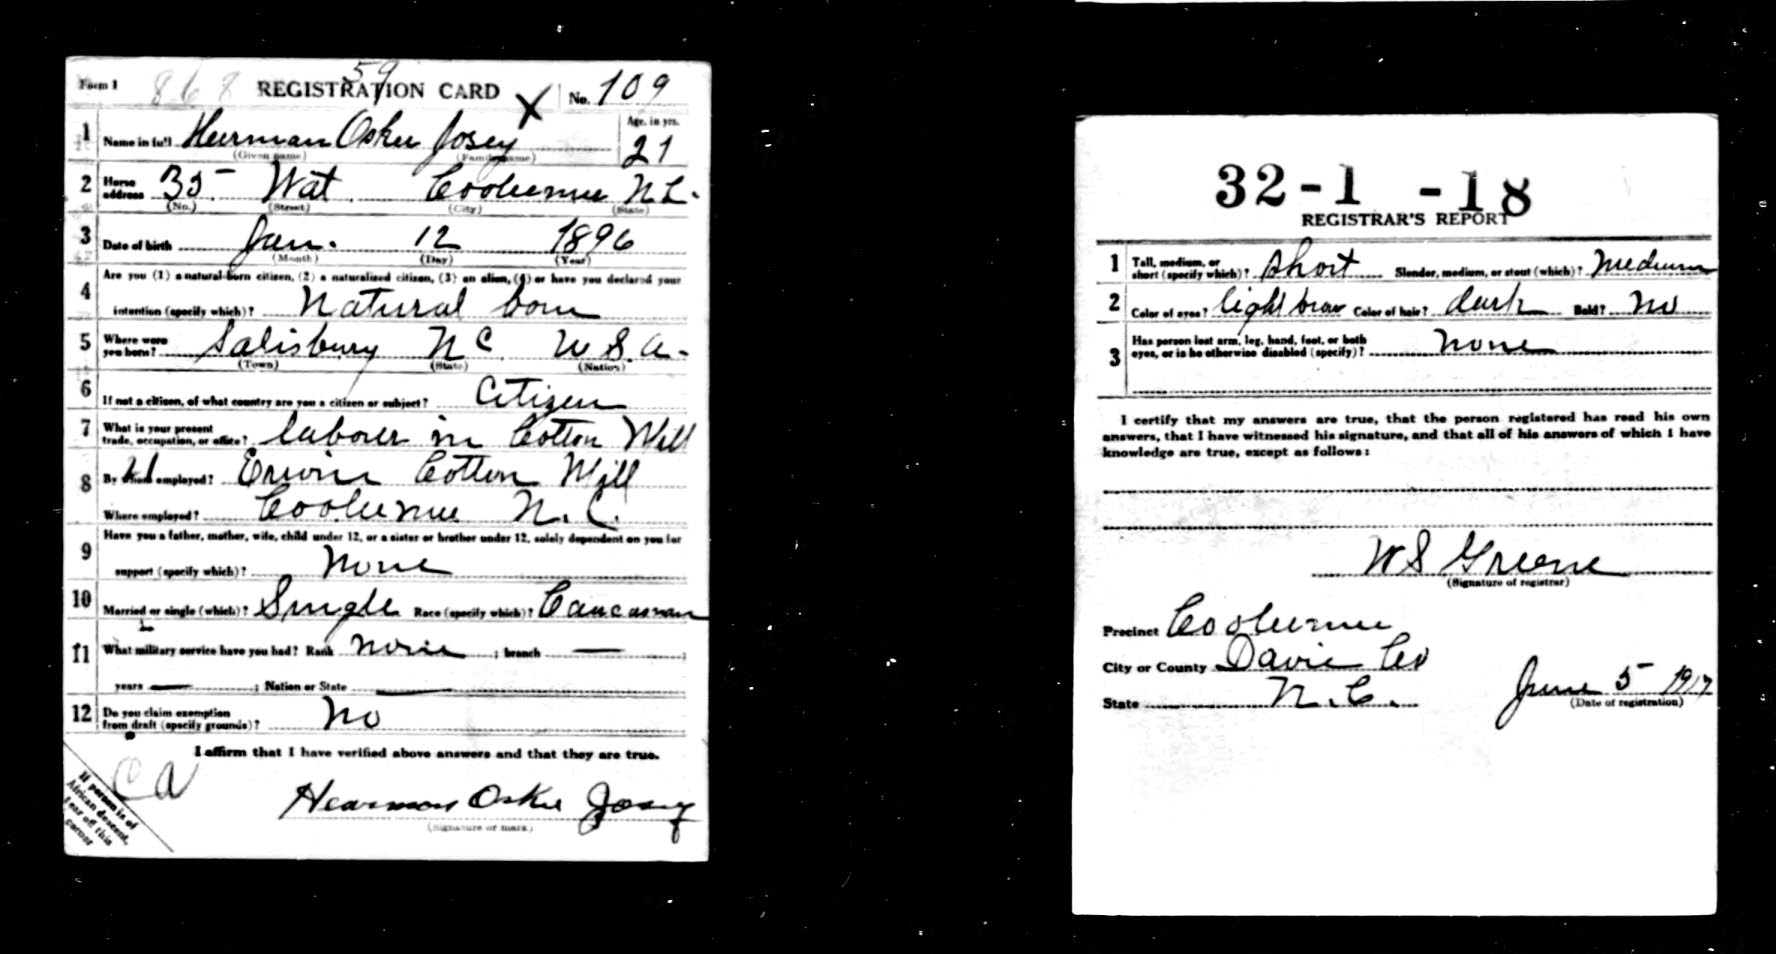 Form 1 868 REGISTRATION CARD 59 X No. 109
1 Name in full Herman Osker Josey Age, in yrs. 21
(Given name) (Family name)
2 Home address 35 Wat Cooleemee N.C.
(No.) (Street) (City) (State)
3 Date of birth Jan. 12 1896
(Month) (Day) (Year)
Are you (1) a natural-born citizen, (2) a naturalized citizen, (3) an alien, (4) or have you declared your
4 intention (specify which)? Natural born
5 Where were you born? Salisbury N C U S. A.
(Town) (State) (Nation)
6 If not a citizen, of what country are you a citizen or subject? Citizen
7 What is your present trade, occupation, or office? labourer in Cotton Mill
8 By whom employed? Erwin Cotton Mill
Where employed? Cooleemee N.C.
9 Have you a father, mother, wife, child under 12, or a sister or brother under 12, solely dependent on you for
support (specify which)? None
10 Married or single (which)? Single Race (specify which)? Caucasian
11 What military service have you had? Rank none ; branch — ;
years — ; Nation or State —
12 Do you claim exemption from draft (specify grounds)? No
I affirm that I have verified above answers and that they are true.
Hearmon Osker Josey
(Signature or mark)
If person is of
African descent,
tear off this
corner
32-1 -18
REGISTRAR'S REPORT
1 Tall, medium, or short (specify which)? Short Slender, medium, or stout (which)? Medium
2 Color of eyes? light brow Color of hair? dark Bald? No
3 Has person lost arm, leg, hand, foot, or both
eyes, or is he otherwise disabled (specify)? None
I certify that my answers are true, that the person registered has read his own
answers, that I have witnessed his signature, and that all of his answers of which I have
knowledge are true, except as follows:
W S Greene
(Signature of registrar)
Precinct Cooleemee
City or County Davie Co
State N.C. June 5 1917
(Date of registration)